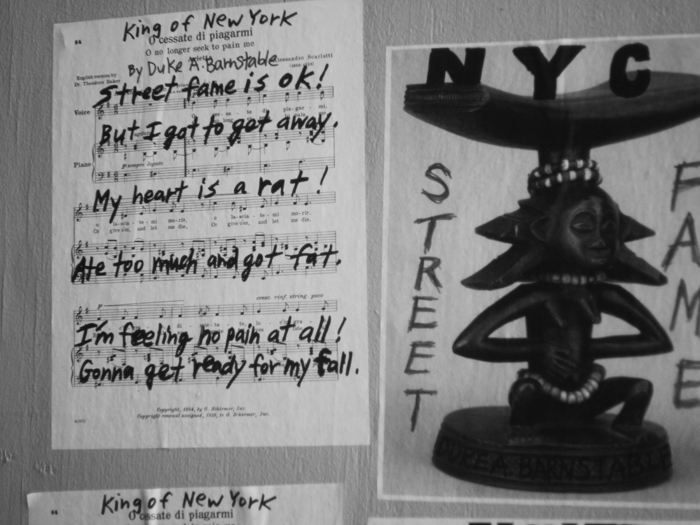 King of New York
66
O cessate di piagarmi
O no longer seek to pain me
By Duke A. Barnstable
Alessandro Scarlatti
English version by
Dr. Theodore Baker
Street fame is ok!
Voice
But I got to get away.
Piano
My heart is a rat!
la-scia-te-mi mo-rir, o la-scia-te-mi mo-rir.
Or give me, and let me die,
Ate too much and got fat.
p
cresc. rinf. string. poco
I'm feeling no pain at all!
Gonna get ready for my fall.
Copyright, 1894, by G. Schirmer, Inc.
Copyright renewal assigned, 1926, to G. Schirmer, Inc.
NYC
STREET
FAME
DUKE A. BARNSTABLE
King of New York
66
O cessate di piagarmi